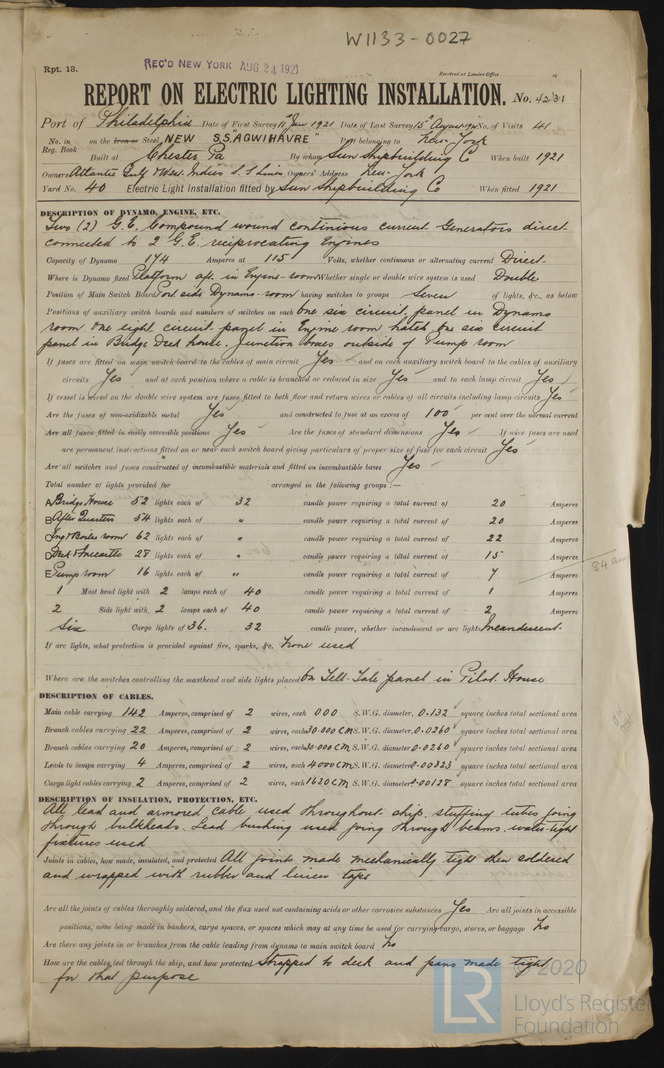 W1133-0027
Rpt. 13.
REC'D NEW YORK AUG 24 1921
Received at London Office
REPORT ON ELECTRIC LIGHTING INSTALLATION. No. 4231
Port of Philadelphia Date of First Survey Jan 1921 Date of Last Survey 15th No. of Visits 41
No. in Reg. Book on the Iron or Steel NEW S.S. "AGWIHAVRE" Port belonging to New-York
Built at Chester Pa By whom Sun Shipbuilding Co When built 1921
Owners Atlantic Gulf & West Indies S.S Lines Owners' Address New-York
Yard No. 40 Electric Light Installation fitted by Sun Shipbuilding Co When fitted 1921
DESCRIPTION OF DYNAMO, ENGINE, ETC.
Two (2) G.E. Compound wound continious current Generators direct
connected to 2 G.E. reciprocating Engines
Capacity of Dynamo 174 Amperes at 115 Volts, whether continuous or alternating current Direct
Where is Dynamo fixed Platform aft. in Engine-room Whether single or double wire system is used Double
Position of Main Switch Board Port side Dynamo-room having switches to groups Seven of lights, &c., as below
Positions of auxiliary switch boards and numbers of switches on each One six circuit, panel in Dynamo
room. One eight circuit panel in Engine room hatch One six circuit
panel in Bridge Deck house. Junction boxes outside of Pump room
If fuses are fitted on main switch board to the cables of main circuit Yes and on each auxiliary switch board to the cables of auxiliary
circuits Yes and at each position where a cable is branched or reduced in size Yes and to each lamp circuit Yes
If vessel is wired on the double wire system are fuses fitted to both flow and return wires or cables of all circuits including lamp circuits Yes
Are the fuses of non-oxidizable metal Yes and constructed to fuse at an excess of 100 per cent over the normal current
Are all fuses fitted in easily accessible positions Yes Are the fuses of standard dimensions Yes If wire fuses are used
are permanent instructions fitted on or near each switch board giving particulars of proper size of fuse for each circuit Yes
Are all switches and fuses constructed of incombustible materials and fitted on incombustible bases Yes
Total number of lights provided for arranged in the following groups :—
A Bridge House 52 lights each of 32 candle power requiring a total current of 20 Amperes
B After Quarters 54 lights each of " candle power requiring a total current of 20 Amperes
C Eng & Boiler room 62 lights each of " candle power requiring a total current of 22 Amperes
D Deck & Forecastle 28 lights each of " candle power requiring a total current of 15 Amperes
E Pump room 16 lights each of " candle power requiring a total current of 7 Amperes
84
1 Mast head light with 2 lamps each of 40 candle power requiring a total current of 1 Amperes
2 Side light with 2 lamps each of 40 candle power requiring a total current of 2 Amperes
Six Cargo lights of 36. 32 candle power, whether incandescent or arc lights Incandescent.
If arc lights, what protection is provided against fire, sparks, &c. None used
Where are the switches controlling the masthead and side lights placed On Tell-Tale panel in Pilot House
DESCRIPTION OF CABLES.
Main cable carrying 142 Amperes, comprised of 2 wires, each 000 S.W.G. diameter, 0.132 square inches total sectional area
Branch cables carrying 22 Amperes, comprised of 2 wires, each 30.000 CM S.W.G. diameter, 0.0260 square inches total sectional area
Branch cables carrying 20 Amperes, comprised of 2 wires, each 30.000 CM S.W.G. diameter, 0.0260 square inches total sectional area
Leads to lamps carrying 4 Amperes, comprised of 2 wires, each 4000 CM S.W.G. diameter, 0.00323 square inches total sectional area
Cargo light cables carrying 2 Amperes, comprised of 2 wires, each 1620 CM S.W.G. diameter, 0.00128 square inches total sectional area
DESCRIPTION OF INSULATION, PROTECTION, ETC.
All lead and armored cable used throughout ship. stuffing tubes going
through bulkheads. Lead bushing used going through beams. water-tight
fixtures used
Joints in cables, how made, insulated, and protected All joints made mechanically tight then soldered
and wrapped with rubber and linen tape
Are all the joints of cables thoroughly soldered, and the flux used not containing acids or other corrosive substances Yes Are all joints in accessible
positions, none being made in bunkers, cargo spaces, or spaces which may at any time be used for carrying cargo, stores, or baggage No
Are there any joints in or branches from the cable leading from dynamo to main switch board No
How are the cables led through the ship, and how protected Strapped to deck and pans made tight
for that purpose
LR
© 2020
Lloyd's Register
Foundation